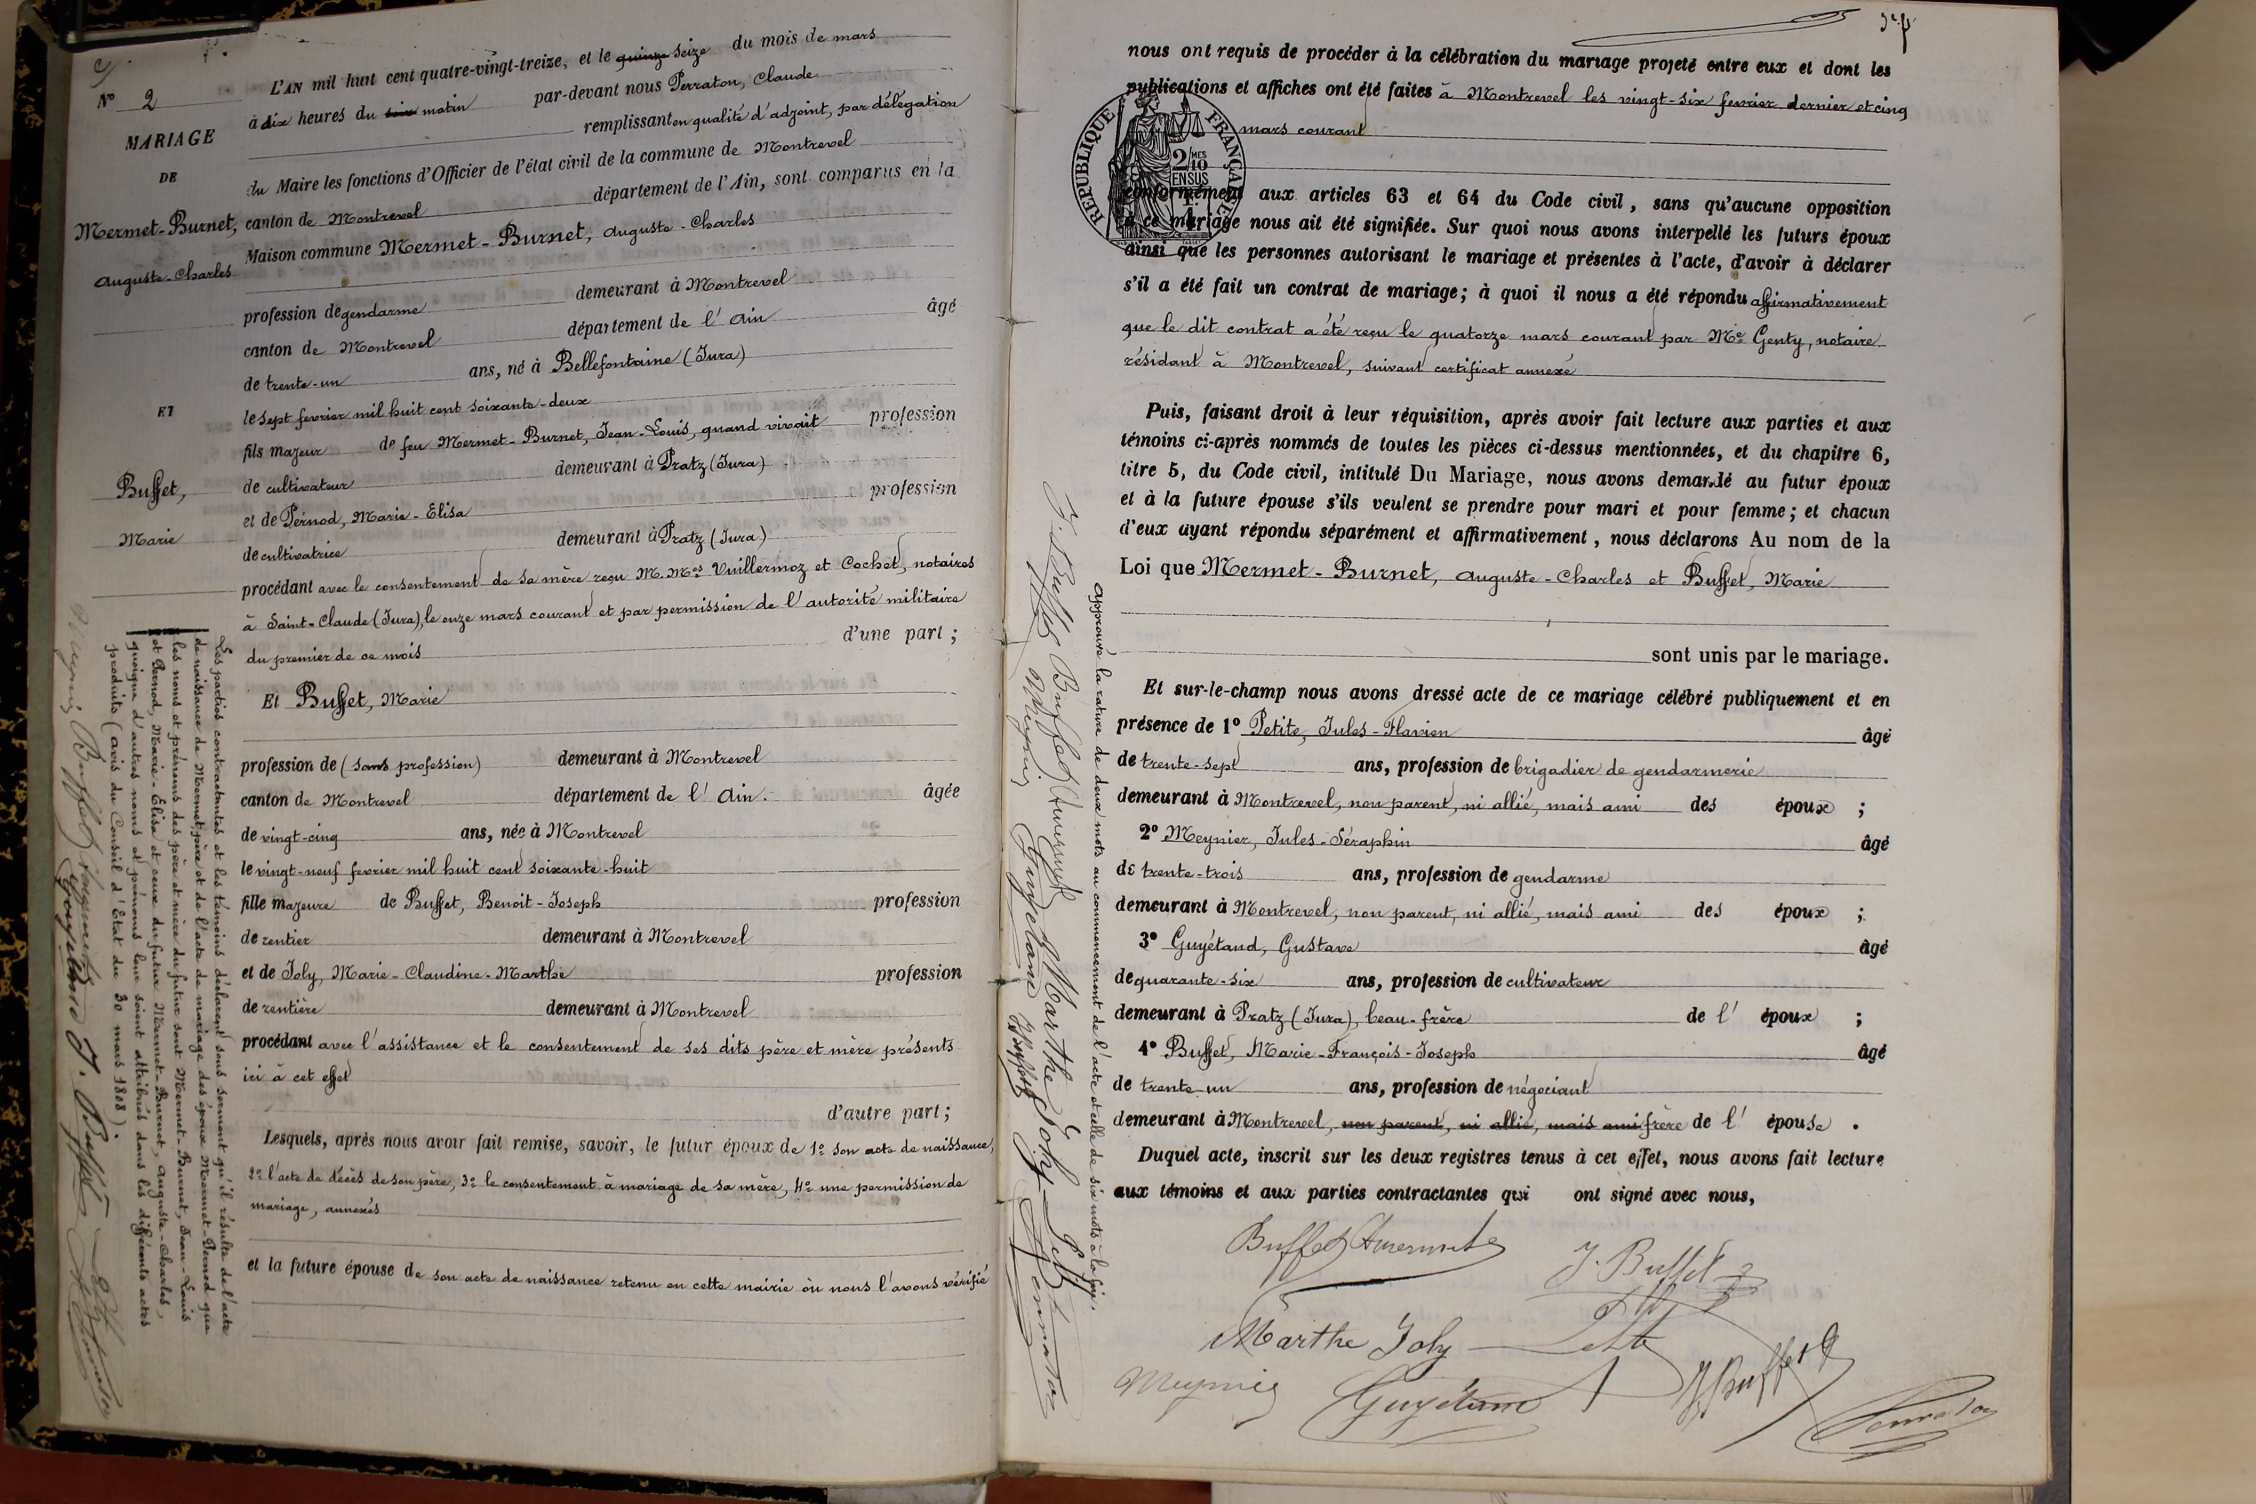 Nº 2
MARIAGE
DE
Mermet-Burnet,
Auguste-Charles
ET
Buffet,
Marie
L'AN mil huit cent quatre-vingt-treize, et le quinze seize du mois de mars
à dix heures du soir matin par-devant nous Perraton, Claude
remplissant en qualité d'adjoint, par délégation
du Maire les fonctions d'Officier de l'état civil de la commune de Montrevel
canton de Montrevel département de l'Ain, sont comparus en la
Maison commune Mermet-Burnet, Auguste-Charles
profession de gendarme demeurant à Montrevel
canton de Montrevel département de l'Ain âgé
de trente-un ans, né à Bellefontaine (Jura)
le sept fevrier mil huit cent soixante-deux
fils majeur de feu Mermet-Burnet, Jean-Louis, quand vivait profession
de cultivateur demeurant à Pratz (Jura)
et de Pernod, Marie-Elisa profession
de cultivatrice demeurant à Pratz (Jura)
procédant avec le consentement de sa mère reçu M.Mes Vuillermoz et Cochet, notaires
à Saint-Claude (Jura), le onze mars courant et par permission de l'autorité militaire
du premier de ce mois d'une part;
Et Buffet, Marie
profession de (sans profession) demeurant à Montrevel
canton de Montrevel département de l'Ain. âgée
de vingt-cinq ans, née à Montrevel
le vingt-neuf fevrier mil huit cent soixante-huit
fille majeure de Buffet, Benoit-Joseph profession
de rentier demeurant à Montrevel
et de Joly, Marie-Claudine-Marthe profession
de rentière demeurant à Montrevel
procédant avec l'assistance et le consentement de ses dits père et mère présents
ici à cet effet
d'autre part;
Lesquels, après nous avoir fait remise, savoir, le futur époux de 1º son acte de naissance,
2º l'acte de décès de son père, 3º le consentement à mariage de sa mère, 4º une permission de
mariage, annexés
et la future épouse de son acte de naissance retenu en cette mairie où nous l'avons vérifié
Les parties contractantes et les témoins déclarent sous serment qu'il résulte de l'acte
de naissance de Mermet, père et de l'acte de mariage des époux Mermet-Pernod que
les noms et prénoms des père et mère du futur sont Mermet-Burnet, Jean-Louis
et Pernod, Marie-Elisa et ceux du futur Mermet-Burnet, Auguste-Charles,
quoique d'autres noms et prénoms leur soient attribués dans les différents actes
produits (avis du Conseil d'Etat du 30 mars 1808).
Meynier Buffet Guyétand J. Buffet
nous ont requis de procéder à la célébration du mariage projeté entre eux et dont les
publications et affiches ont été faites à Montrevel les vingt-six fevrier dernier et cinq
mars courant
RÉPUBLIQUE FRANÇAISE
2/10 MES
EN SUS
conformément aux articles 63 et 64 du Code civil, sans qu'aucune opposition
à ce mariage nous ait été signifiée. Sur quoi nous avons interpellé les futurs époux
ainsi que les personnes autorisant le mariage et présentes à l'acte, d'avoir à déclarer
s'il a été fait un contrat de mariage; à quoi il nous a été répondu affirmativement
que le dit contrat a été reçu le quatorze mars courant par Me Genty, notaire
résidant à Montrevel, suivant certificat annexé
Puis, faisant droit à leur réquisition, après avoir fait lecture aux parties et aux
témoins ci-après nommés de toutes les pièces ci-dessus mentionnées, et du chapitre 6,
titre 5, du Code civil, intitulé Du Mariage, nous avons demandé au futur époux
et à la future épouse s'ils veulent se prendre pour mari et pour femme; et chacun
d'eux ayant répondu séparément et affirmativement, nous déclarons Au nom de la
Loi que Mermet-Burnet, Auguste-Charles et Buffet, Marie
sont unis par le mariage.
Et sur-le-champ nous avons dressé acte de ce mariage célébré publiquement et en
présence de 1º Petite, Jules-Flavien âgé
de trente-sept ans, profession de brigadier de gendarmerie
demeurant à Montrevel, non parent, ni allié, mais ami des époux;
2º Meynier, Jules-Séraphin âgé
de trente-trois ans, profession de gendarme
demeurant à Montrevel, non parent, ni allié, mais ami des époux;
3º Guyétand, Gustave âgé
de quarante-six ans, profession de cultivateur
demeurant à Pratz (Jura), beau-frère de l'époux;
4º Buffet, Marie-François-Joseph âgé
de trente-un ans, profession de négociant
demeurant à Montrevel, non parent, ni allié, mais ami frère de l'épouse.
Duquel acte, inscrit sur les deux registres tenus à cet effet, nous avons fait lecture
aux témoins et aux parties contractantes qui ont signé avec nous,
Buffet J. Buffet
Marthe Joly Petite
Meynier Guyétand Buffet Perraton
Approuvé la rature de deux mots au commencement de l'acte et celle de six mots à la fin.
J. Buffet Buffet Marthe Joly Petite
Meynier Guyétand Buffet Perraton